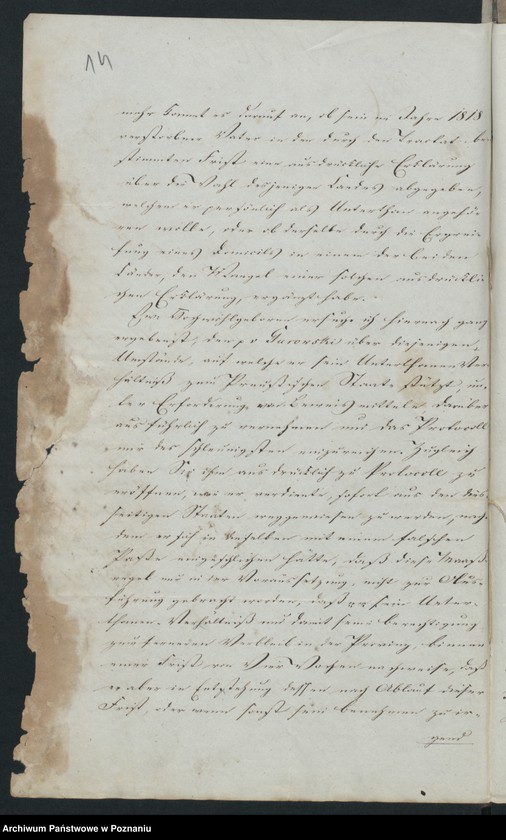 14
mehr kommt es darauf an, ob sein im Jahre 1818
verstorbener Vater in der durch den Tractat be-
stimmten Frist eine ausdrückliche Erklärung
über die Wahl desjenigen Landes abgegeben,
welchem er persönlich als Unterthan angehö-
ren wolle, oder ob derselbe durch die Ergrei-
fung eines Domicils in einem der beiden
Länder, den Mangel einer solchen ausdrückli-
chen Erklärung, ergänzt habe.
Euer Hochwohlgeboren ersuche ich hiernach ganz
ergebenst, den p über diejenigen
Umstände, auf welche er sein Unterthanen Ver-
hältniß zum Preußischen Staate stützt, un-
ter Erforderung von Beweismitteln, darüber
ausführlich zu vernehmen und das Protocoll
mir des schleunigsten einzureichen. Zugleich
haben Sie ihm ausdrücklich zu Protocoll zu
eröffnen, wie er verdiente, sofort aus den dies-
seitigen Staaten weggewiesen zu werden, nach-
dem er sich in dieselben mit einem falschen
Passe eingeschlichen hatte, daß diese Maaß-
regel nur in der Voraussetzung nicht zur Aus-
führung gebracht worden, daß er sein Unter-
thanen-Verhältniß und damit seine Berechtigung
zum ferneren Verbleib in der Provinz, binnen
einer Frist von Vier Wochen nachweise, daß
er aber in Entstehung dessen nach Ablauf dieser
Frist, oder wenn sonst sein Benehmen zu ir-
gend
Archiwum Państwowe w Poznaniu